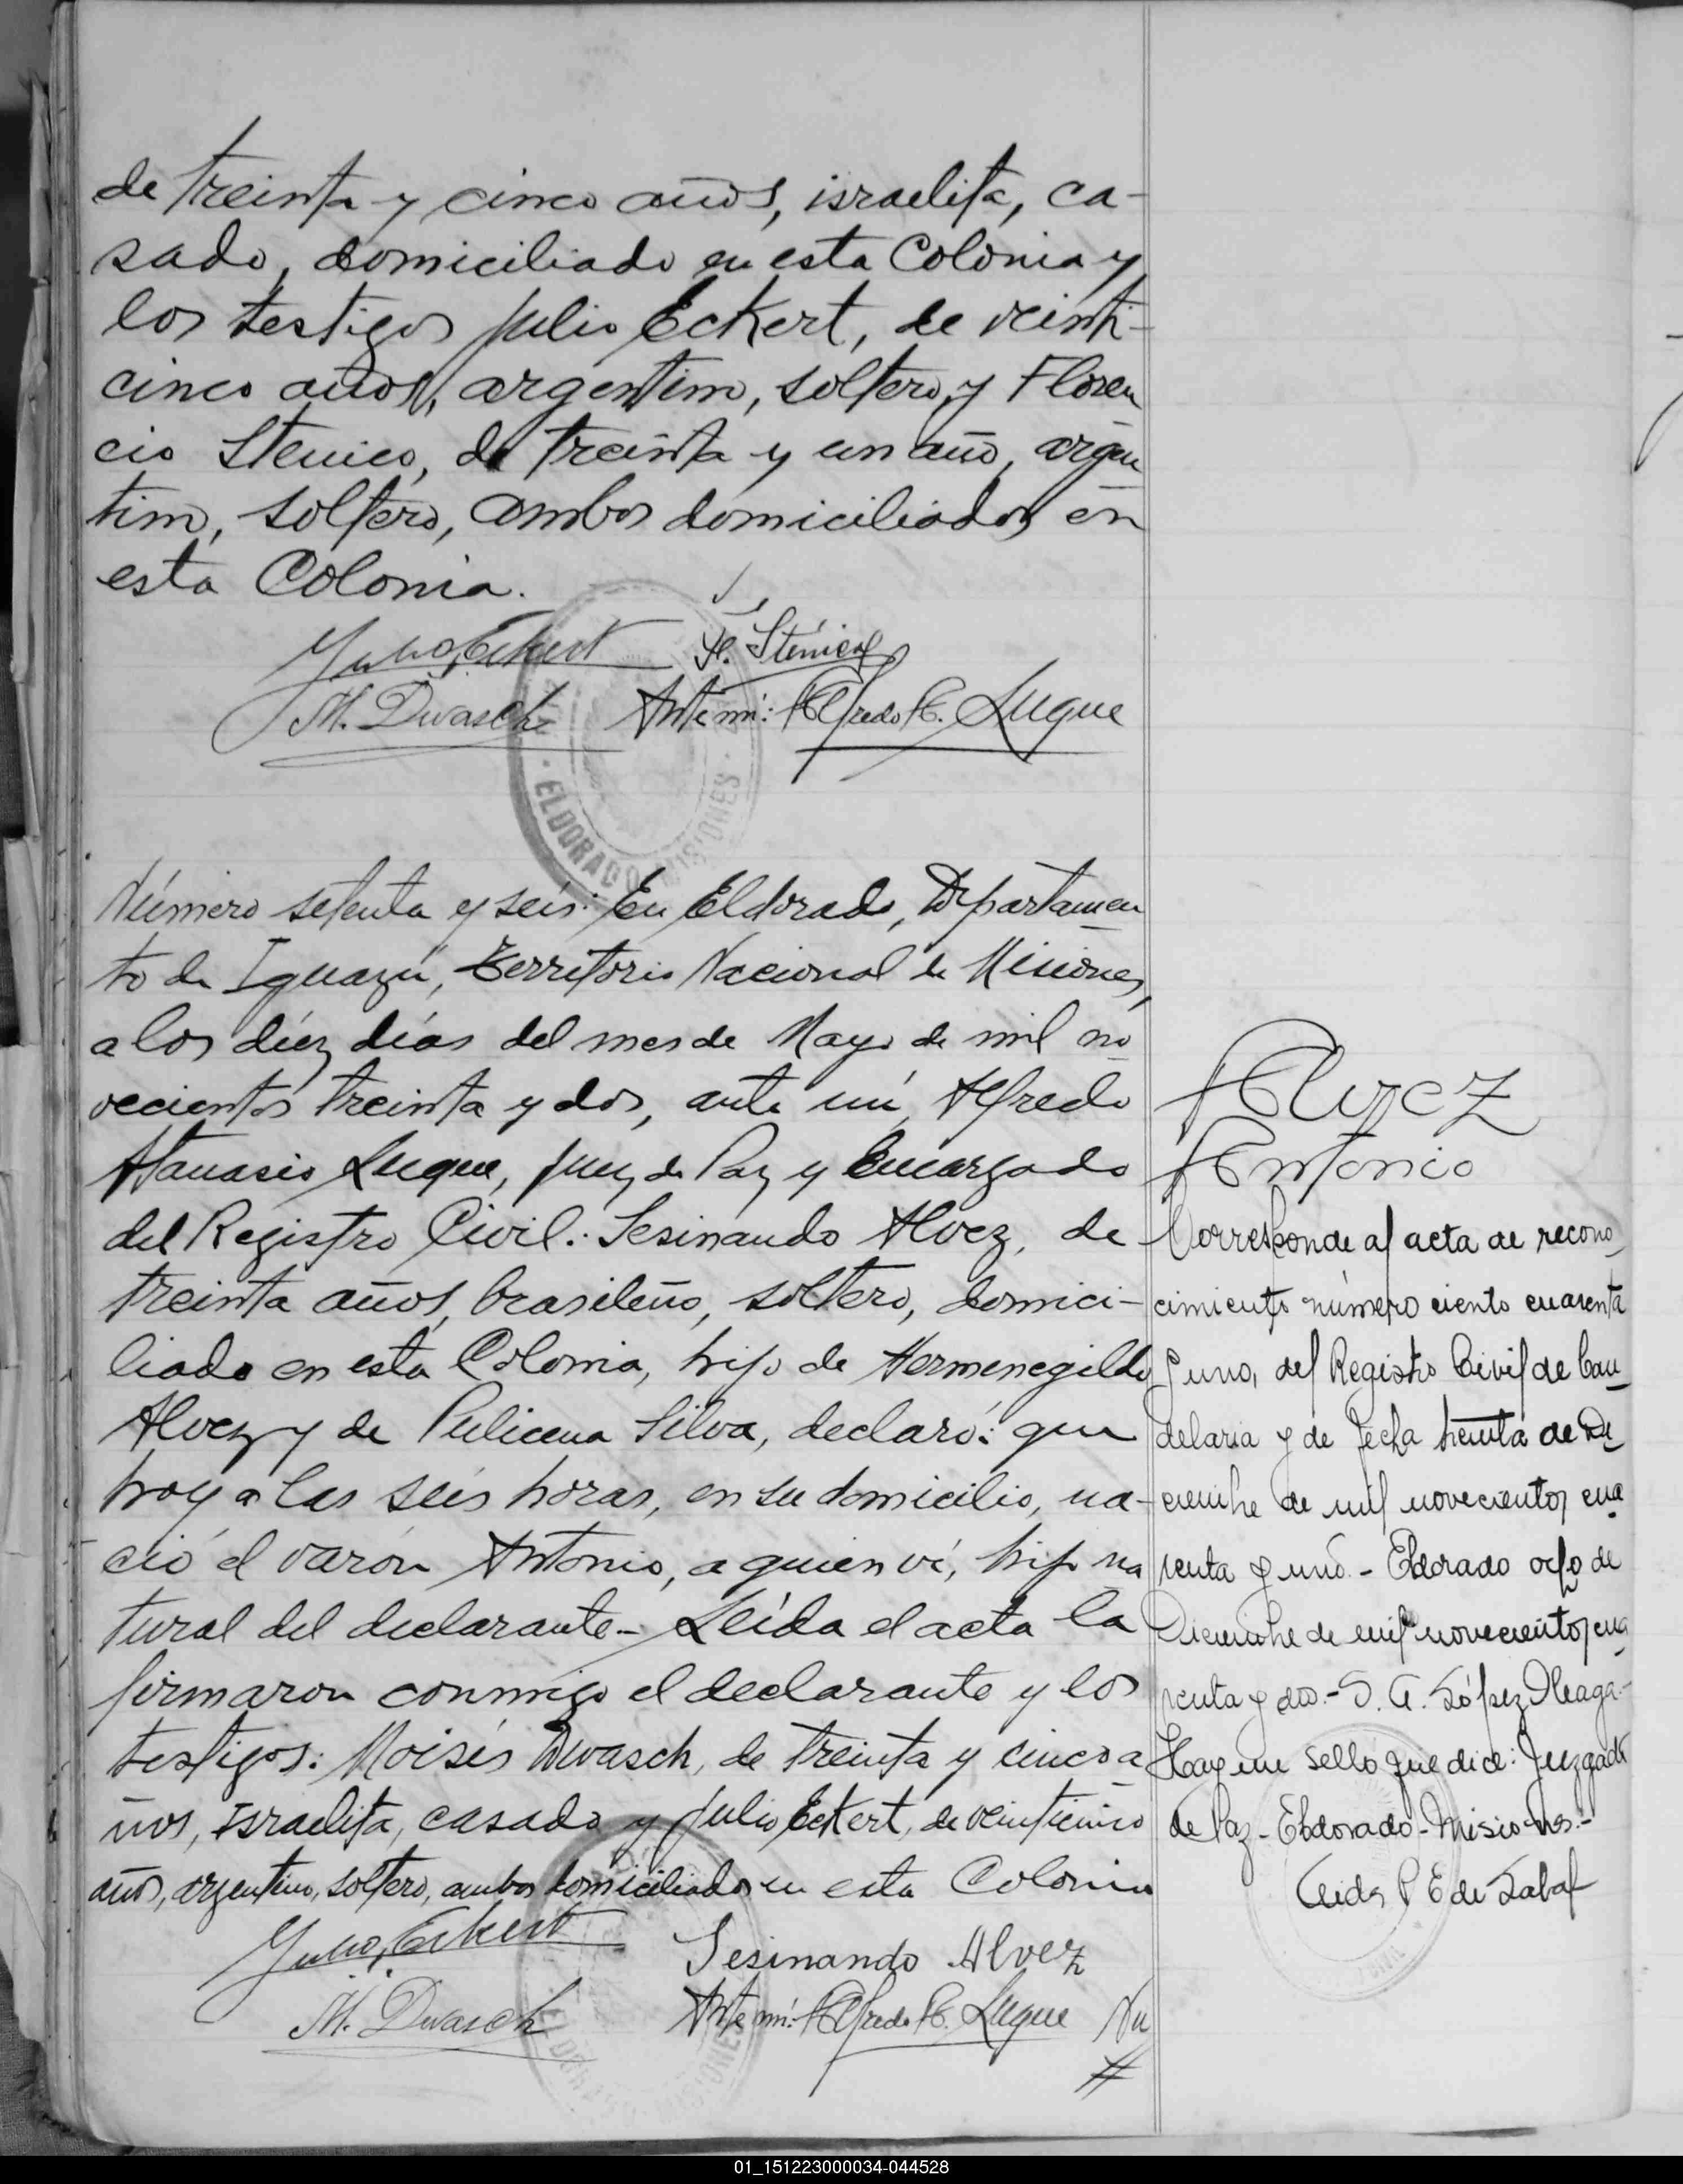 de treinta y cinco años, israelita, ca-
sado, domiciliado en esta Colonia y
los testigos Julio Eckert, de veinti-
cinco años, argentino, soltero, y Floren
cio Stenico, de treinta y un año, argen
tino, soltero, ambos domiciliados en
esta Colonia.
Julio Eckert Fl. Sténico
M. Dwasch Ante mi: Alfredo A. Luque
ELDORADO MISIONES
Número setenta y seis: En Eldorado, Departamen
to de Iguazú, Territorio Nacional de Misiones,
a los diéz días del mes de Mayo de mil no
vecientos treinta y dos, ante mí, Alfredo
Atanasio Luque, Juez de Paz y Encargado
del Registro Civil: Sesinando Alvez, de
treinta años, brasileño, soltero, domici-
liado en esta Colonia, hijo de Hermenegildo
Alvez y de Pulicena Silva, declaró: que
hoy a las seis horas, en su domicilio, na-
ció el varón Antonio, a quien ví, hijo na
tural del declarante.- Leída el acta la
firmaron conmigo el declarante y los
testigos: Moisés Dwasch, de treinta y cinco a
ños, Israelita, casado y Julio Eckert, de veinticinco
años, argentino, soltero, ambos domiciliados en esta Colonia
Julio Eckert Sesinando Alvez
M. Dwasch Ante mi: Alfredo A. Luque Nu
#
ELDORADO MISIONES
Alvez
Antonio
Corresponde al acta de recono
cimiento número ciento cuarenta
y uno, del Registro Civil de Can
delaria y de fecha treinta de Di
ciembre de mil novecientos cua
renta y uno.- Eldorado ocho de
Diciembre de mil novecientos cua
renta y dos.- S. A. López Aleaga.-
Hay un sello que dice: Juzgado
de Paz - Eldorado - Misiones.-
Leida P E de Labat
01_151223000034-044528